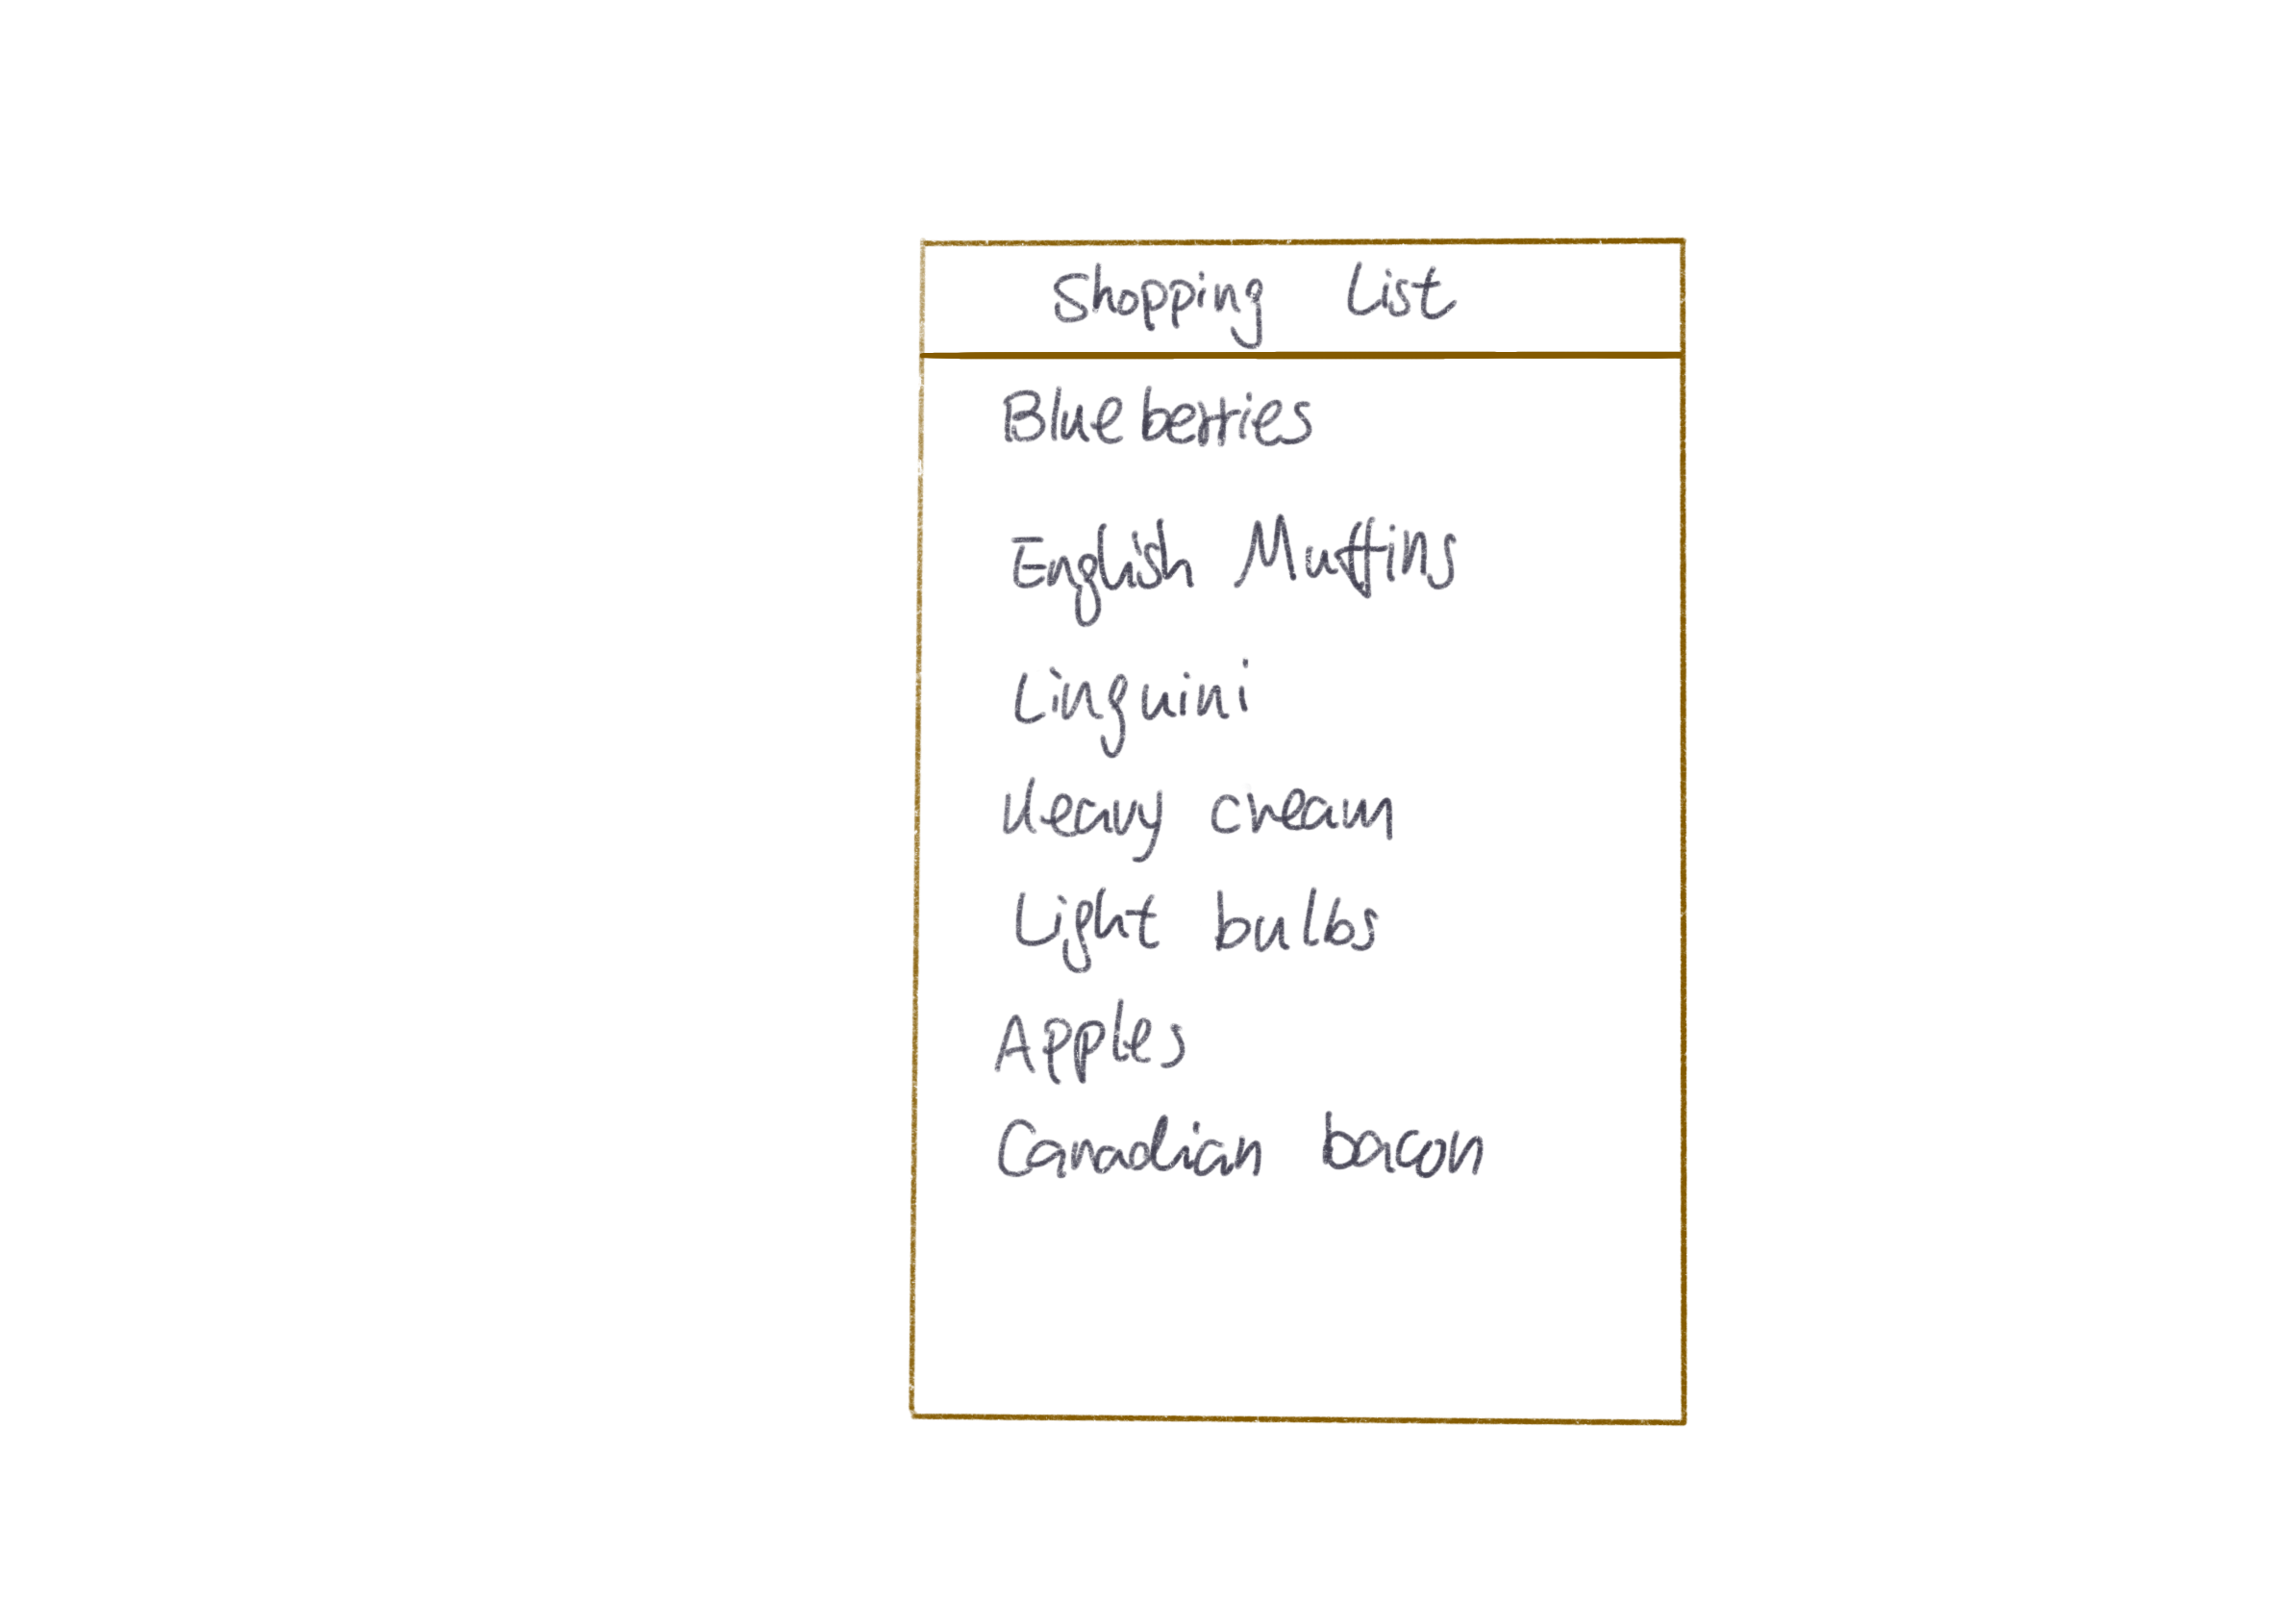 Shopping List
Blueberries
English Muffins
Linguini
Heavy cream
Light bulbs
Apples
Canadian bacon